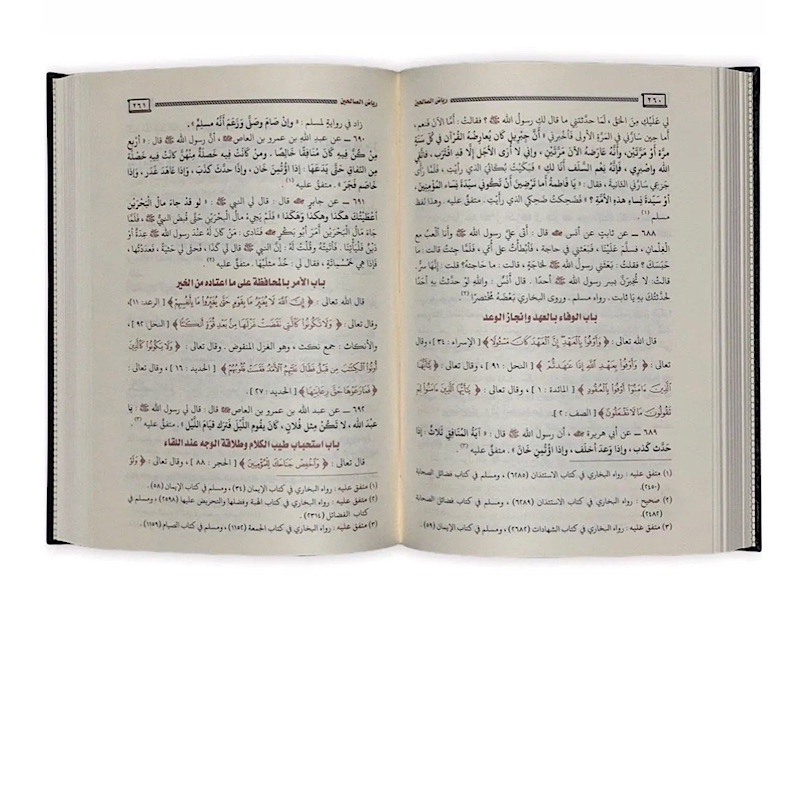 ٢٦٠ رياض الصالحين
لي عَلَيْكِ مِنَ الحَقِّ ، لَمَا حَدَّثْتِنِي ما قال لكِ رسول الله ﷺ ؟ فقالتْ : أمَّا الآنَ فَنَعَمْ ،
أما حين سَارَّنِي في المَرَّةِ الأولى فأخبرني « أنَّ جِبْرِيلَ كان يُعارِضُهُ القُرْآنَ في كُلِّ سَنَةٍ
مَرَّةً أوْ مَرَّتَيْنِ ، وأنَّه عَارَضَهُ الآنَ مَرَّتَيْنِ ، وإني لا أُرَى الأجَلَ إلَّا قدِ اقْتَرَبَ ، فاتَّقِي
الله واصْبِرِي ، فَإنَّه نِعْمَ السَّلَفُ أنَا لكِ » فَبَكَيْتُ بُكائيَ الذي رأيْتِ ، فَلَمَّا رَأى
جَزَعِي سَارَّنِي الثانيةَ ، فقال : « يا فاطمةُ أما تَرْضَيْنَ أنْ تَكُونِي سيِّدَةَ نِسَاء المُؤْمِنِينَ ،
أوْ سَيِّدَةَ نِساءِ هذِهِ الأمَّةِ ؟ » فَضَحِكْتُ ضَحِكِي الذي رَأيْتِ . متفقٌ عليه . وهذا لفظ
مسلم (١) .
٦٨٨ ــ عن ثَابتٍ عن أنس قال : أتى عليَّ رسول الله ﷺ وأنا ألْعبُ مع
الغِلْمَانِ ، فسلَّمَ عَلَيْنَا ، فَبَعَثَنِي في حاجة ، فأبْطَأتُ على أُمِّي ، فَلَمَّا جِئْتُ قالت : ما
حَبَسَكَ ؟ فقلتُ : بَعَثَنِي رسولُ الله ﷺ لِحَاجَةٍ ، قالت : ما حَاجَتُهُ ؟ قلت : إنَّهَا سِرٌّ .
قالتْ : لا تُخْبِرَنَّ بِسِرِّ رسول الله ﷺ أحدًا . قال أنَسٌ : واللهِ لوْ حَدَّثْتُ بِهِ أحَدًا
لَحَدَّثْتُكَ بِهِ يَا ثابت . رواه مسلم . وروى البخاري بَعْضَهُ مُخْتَصَرًا (٢) .
باب الوفاء بالعهد وإنجاز الوعد
قال الله تعالى : ﴿ وَأَوْفُوا بِالْعَهْدِ إِنَّ الْعَهْدَ كَانَ مَسْئُولًا ﴾ [ الإسراء : ٣٤ ] ، وقال
تعالى : ﴿ وَأَوْفُوا بِعَهْدِ اللَّهِ إِذَا عَاهَدْتُمْ ﴾ [ النحل : ٩١ ] ، وقال تعالى : ﴿ يَا أَيُّهَا
الَّذِينَ آمَنُوا أَوْفُوا بِالْعُقُودِ ﴾ [ المائدة : ١ ] ، وقال تعالى : ﴿ يَا أَيُّهَا الَّذِينَ آمَنُوا لِمَ
تَقُولُونَ مَا لَا تَفْعَلُونَ ﴾ [ الصف : ٢ ] .
٦٨٩ ــ عن أبي هريرة ، أن رسول الله ﷺ قال : « آيَةُ المُنَافِقِ ثَلَاثٌ : إذَا
حَدَّثَ كَذَب ، وإذا وَعَدَ أخلَف ، وإذا اؤْتُمِنَ خَانَ » . متفقٌ عليه (٣) .
(١) متفق عليه : رواه البخاري في كتاب الاستئذان (٦٢٨٥) ، ومسلم في كتاب فضائل الصحابة
(٢٤٥٠) .
(٢) صحيح : رواه البخاري في كتاب الاستئذان (٦٢٨٩) ، ومسلم في كتاب فضائل الصحابة
(٢٤٨٢) .
(٣) متفق عليه : رواه البخاري في كتاب الشهادات (٢٦٨٢) ، ومسلم في كتاب الإيمان (٥٩) .
رياض الصالحين ٢٦١
زاد في روايةٍ لمسلم : « وإنْ صَامَ وصَلَّى وَزَعَمَ أنَّهُ مُسلِمٌ » .
٦٩٠ ــ عن عبدِ اللهِ بن عمرو بن العاص ، أن رسول الله ﷺ قال : « أرْبَع
مَنْ كُنَّ فِيهِ كَانَ مُنَافِقًا خَالِصًا . ومنْ كَانَتْ فيه خَصلَةٌ مِنْهُنَّ كانَتْ فِيه خَصْلَة
مِنَ النِّفاقِ حَتَّى يَدَعَهَا : إذَا اؤْتُمِنَ خَان ، وإذا حدَّثَ كذَب ، وَإذَا عَاهَدَ غَدَر ، وَإذا
خَاصَم فَجَرَ » . متفق عليه (١) .
٦٩١ ــ عن جابرٍ قال : قال لي النبي ﷺ : « لو قدْ جاءَ مالُ الْبَحْرَيْنِ
أعْطَيْتُكَ هكَذا وهكذا وَهَكَذا » فَلَمْ يَجِيءْ مالُ الْبَحْرَيْنِ حَتَّى قُبِضَ النبي ﷺ ، فَلَمَّا
جَاءَ مَالُ الْبَحْرَيْنِ أَمَرَ أبُو بَكْرٍ فَنَادى : مَنْ كَانَ لَهُ عنْدَ رسول الله ﷺ عِدَةٌ أوْ
دَيْنٌ فَلْيَأْتِنَا . فَأتَيتُهُ وقُلْتُ له : إنَّ النبي ﷺ قال لي كَذَا ، فحَثَى لي حَثْيَةً ، فَعَدَدْتُهَا ،
فَإذا هِي خَمْسُمِائَةٍ ، فقال لي : خُذْ مثلَيْهَا . متفق عليه (٢) .
باب الأمر بالمحافظة على ما اعتاده من الخير
قال الله تعالى : ﴿ إِنَّ اللَّهَ لَا يُغَيِّرُ مَا بِقَوْمٍ حَتَّى يُغَيِّرُوا مَا بِأَنْفُسِهِمْ ﴾ [ الرعد: ١١ ] ،
وقال تعالى : ﴿ وَلَا تَكُونُوا كَالَّتِي نَقَضَتْ غَزْلَهَا مِنْ بَعْدِ قُوَّةٍ أَنْكَاثًا ﴾ [ النحل : ٩٢ ] ،
والأنكاث : جمع نكث ، وهو الغزل المنقوض . وقال تعالى : ﴿ وَلَا يَكُونُوا كَالَّذِينَ
أُوتُوا الْكِتَابَ مِنْ قَبْلُ فَطَالَ عَلَيْهِمُ الْأَمَدُ فَقَسَتْ قُلُوبُهُمْ ﴾ [ الحديد : ١٦ ] ، وقال تعالى :
﴿ فَمَا رَعَوْهَا حَقَّ رِعَايَتِهَا ﴾ [ الحديد : ٢٧ ] .
٦٩٢ ــ عن عبد الله بن عمرو بن العاص قال : قال لي رسول الله ﷺ : يا
عبْدَ الله ، لا تَكُنْ مِثل فُلانٍ ، كَانَ يقُومُ اللَّيْلَ فَتَرَكَ قِيَامَ اللَّيْل ( . متفق عليه (٣) .
باب استحباب طيب الكلام وطلاقة الوجه عند اللقاء
قال الله تعالى : ﴿ وَاخْفِضْ جَنَاحَكَ لِلْمُؤْمِنِينَ ﴾ [ الحجر : ٨٨ ] ، وقال تعالى : ﴿ وَلَوْ
(١) متفق عليه : رواه البخاري في كتاب الإيمان (٣٤) ، ومسلم في كتاب الإيمان (٥٨) .
(٢) متفق عليه : رواه البخاري في كتاب الهبة وفضلها والتحريض عليها (٢٥٩٨) ، ومسلم في
كتاب الفضائل (٢٣١٤) .
(٣) متفق عليه : رواه البخاري في كتاب الجمعة (١١٥٢) ، ومسلم في كتاب الصيام (١١٥٩) .